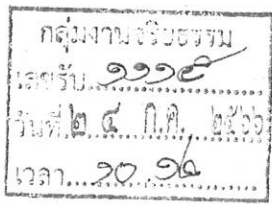 กลุ่มงานจริยธรรม
เลขรับ ๑๑๑๕
วันที่ ๒ ๔ ก.ค. ๒๕๖๖
เวลา ๑๐.๑๒